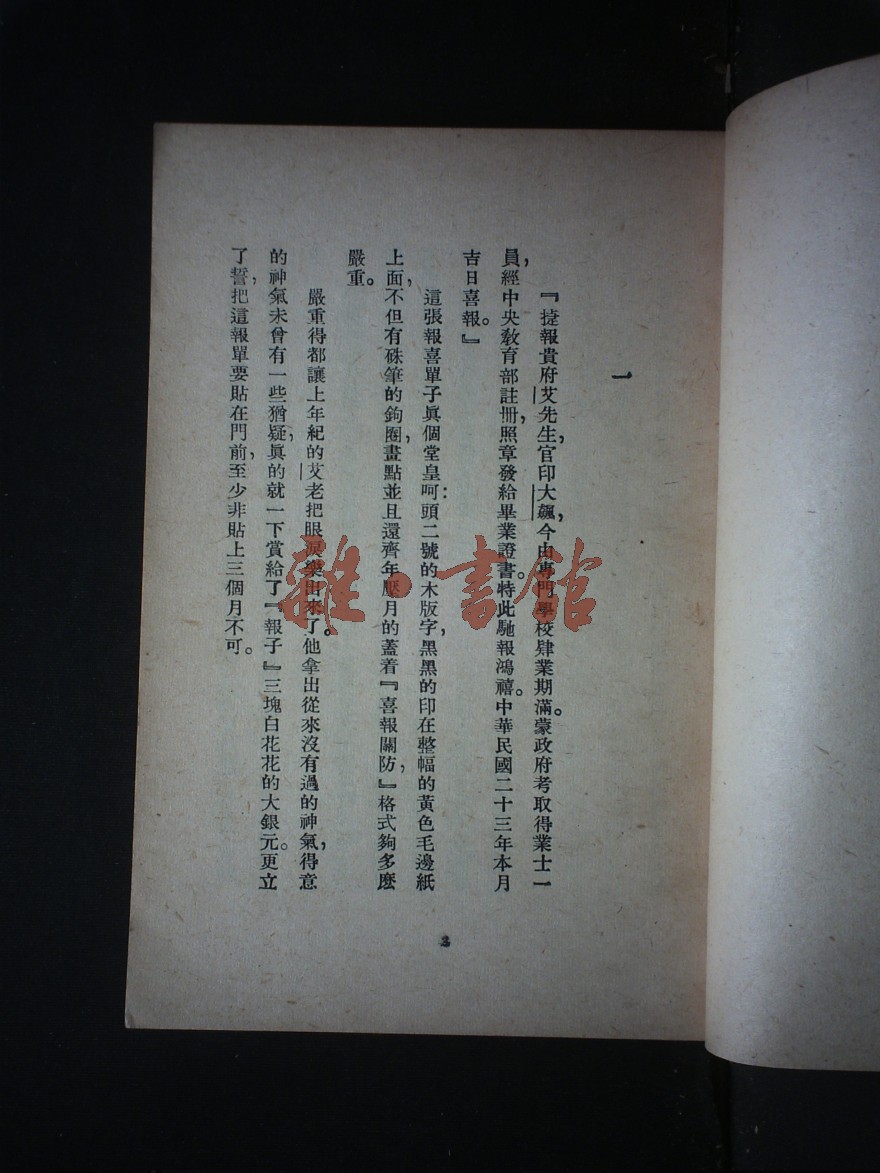 一
『捷報貴府艾先生,官印大飆,今由專門學校肄業期滿。蒙政府考取得業士一
員,經中央教育部註册,照章發給畢業證書。特此馳報鴻禧。中華民國二十三年本月
吉日喜報。』
這張報喜單子眞個堂皇呵:頭二號的木版字,黑黑的印在整幅的黃色毛邊紙
上面,不但有硃筆的鉤圈,畫點並且還齊年壓月的蓋着『喜報關防,』格式夠多麼
嚴重。
嚴重得都讓上年紀的艾老把眼淚樂出來了。他拿出從來沒有過的神氣,得意
的神氣未曾有一些猶疑,眞的就一下賞給了『報子』三塊白花花的大銀元。更立
了誓,把這報單要貼在門前,至少非貼上三個月不可。
3
雜·書館